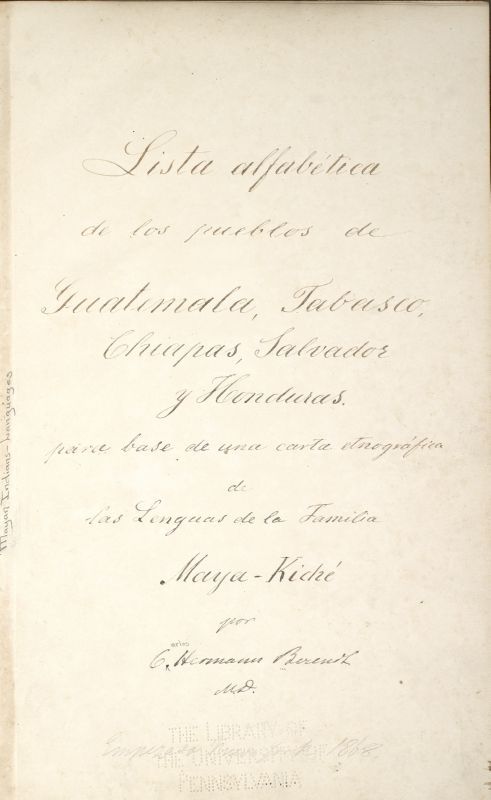 Lista alfabética
de los pueblos de
Guatemala, Tabasco,
Chiapas, Salvador
y Honduras.
para base de una carta etnográfica
de
las Lenguas de la Familia
Maya-Kiché
por
arlos
C. Hermann Berendt
M.D.
THE LIBRARY OF
THE UNIVERSITY OF
PENNSYLVANIA
1868
Mayan Indians-Languages